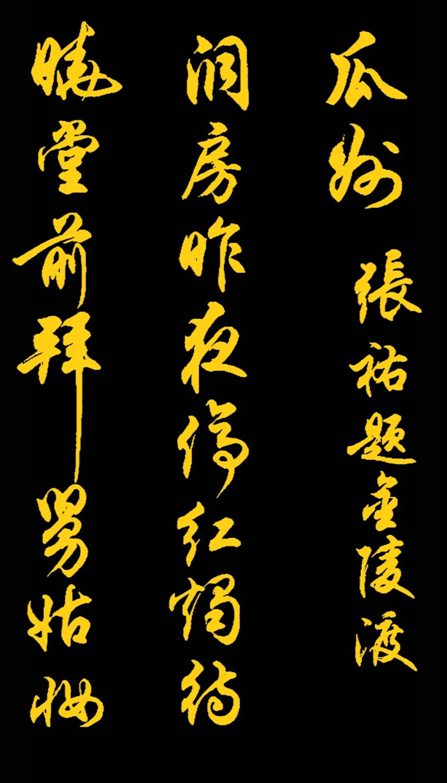 瓜州 張祜題金陵渡
洞房昨夜停紅燭待
曉堂前拜舅姑妝